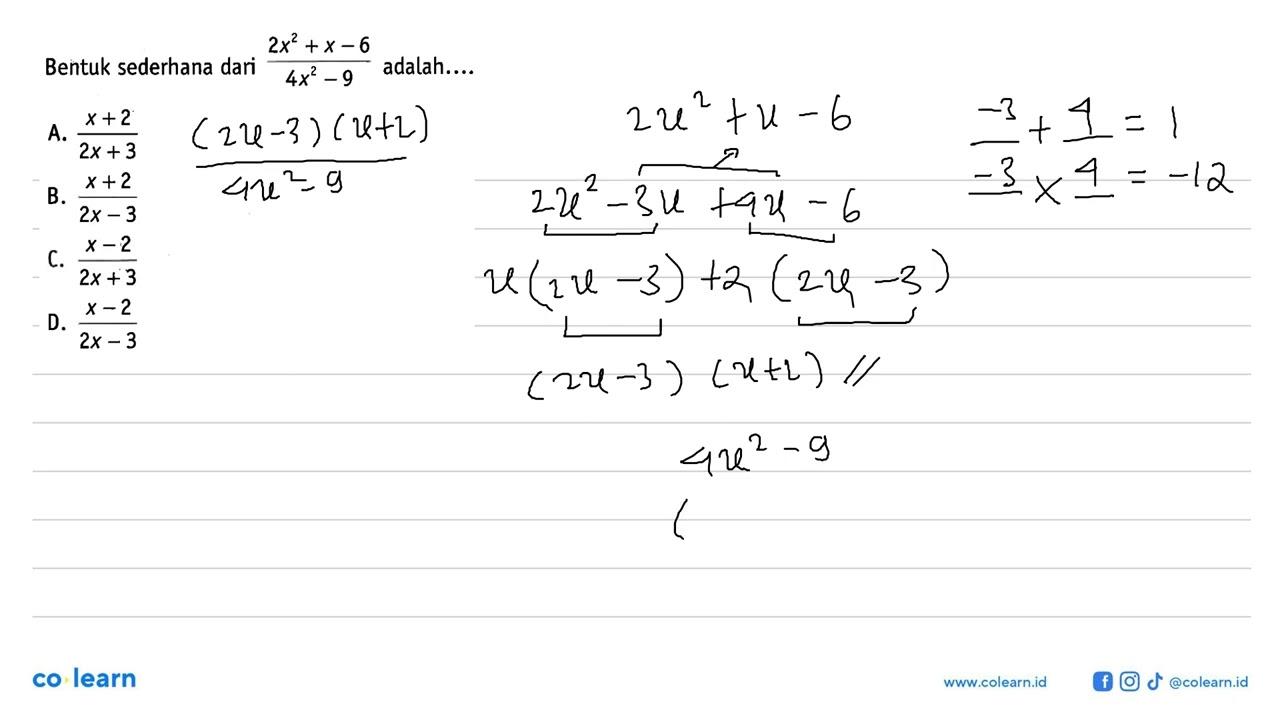 Bentuk sederhana dari (2x² + x – 6)/(4x² – 9) adalah....
A. (x + 2)/(2x + 3)
B. (x + 2)/(2x – 3)
C. (x – 2)/(2x + 3)
D. (x – 2)/(2x – 3)
(2x-3)(x+2)
4x² - 9
2x² + x - 6
2x² - 3x + 4x - 6
x(2x - 3) + 2(2x - 3)
(2x - 3) (x+2) //
4x² - 9
(
-3 + 4 = 1
-3 × 4 = -12
co learn
www.colearn.id
@colearn.id